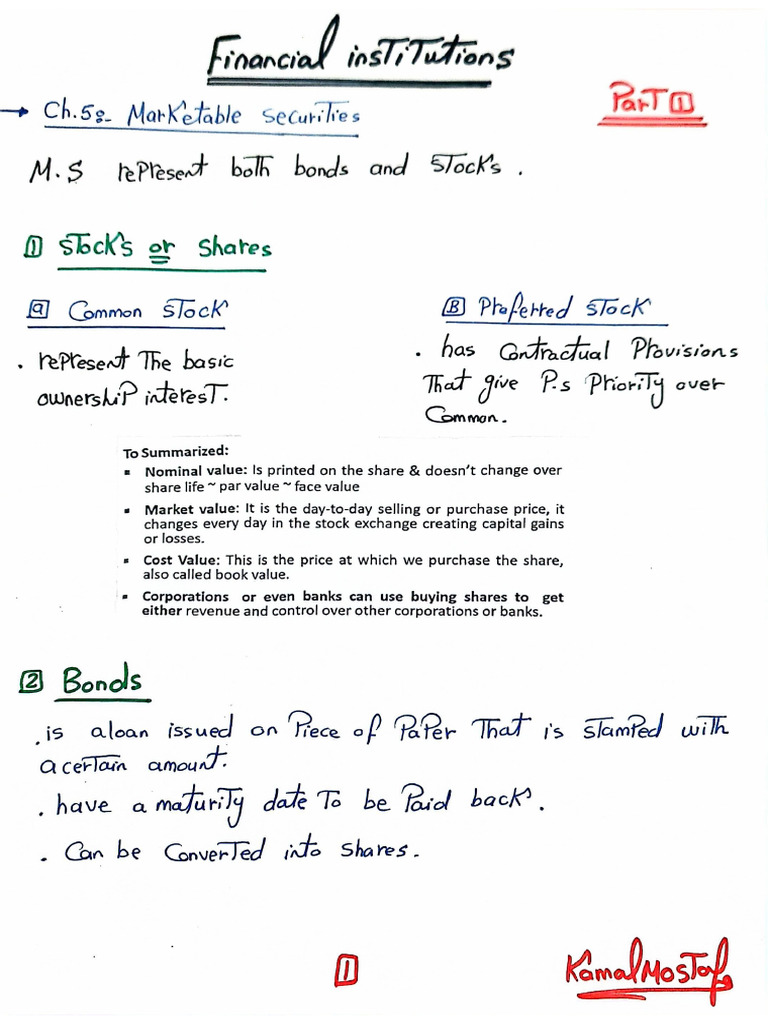 Financial institutions
Part 1
→ Ch.5:- Marketable securities
M.S represent both bonds and stock's.
1 Stock's or shares
a Common stock
B Preferred stock
. represent the basic
ownership interest.
. has contractual provisions
that give P.s priority over
Common.
To Summarized:
▪ Nominal value: Is printed on the share & doesn't change over
share life ~ par value ~ face value
▪ Market value: It is the day-to-day selling or purchase price, it
changes every day in the stock exchange creating capital gains
or losses.
▪ Cost Value: This is the price at which we purchase the share,
also called book value.
▪ Corporations or even banks can use buying shares to get
either revenue and control over other corporations or banks.
2 Bonds
. is a loan issued on piece of paper that is stamped with
a certain amount.
. have a maturity date to be paid back.
. Can be converted into shares.
1
Kamal Mostafa